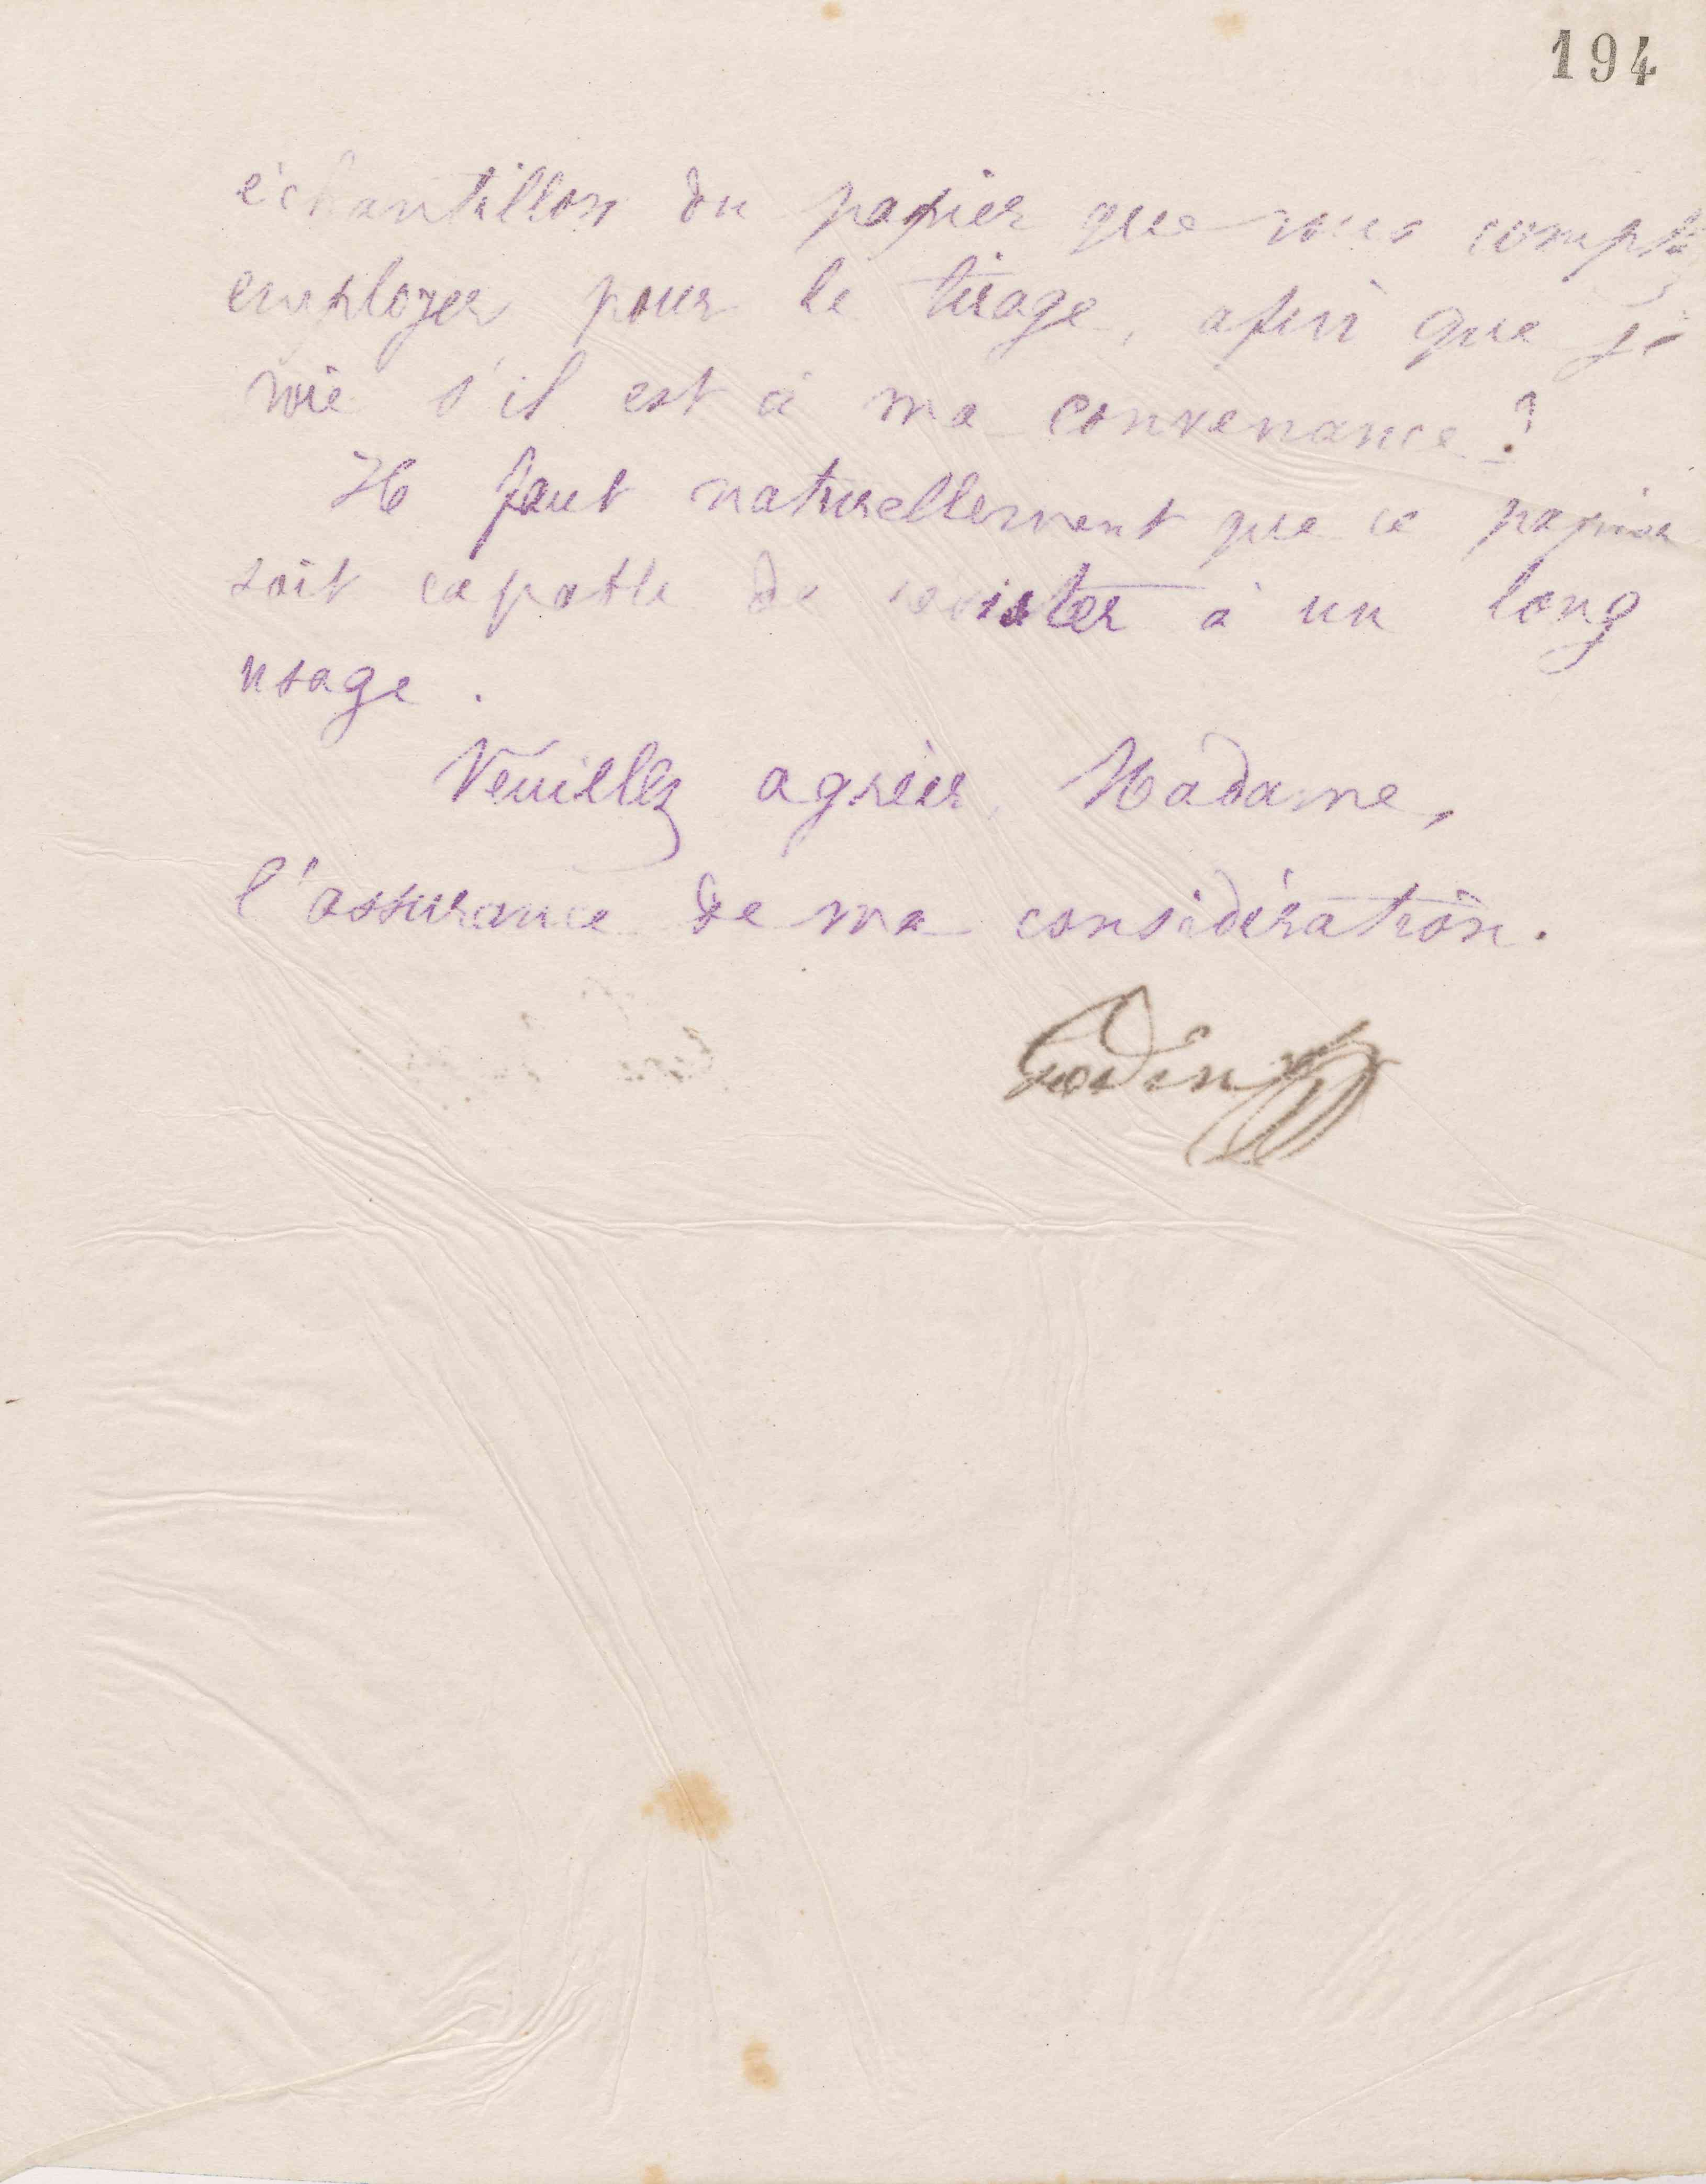 194
échantillon du papier que vous comptez
employer pour le tirage, afin que je
voie s'il est à ma convenance ?
Il faut naturellement que ce papier
soit capable de résister à un long
usage.
Veuillez agréer, Madame,
l'assurance de ma considération.
Godin